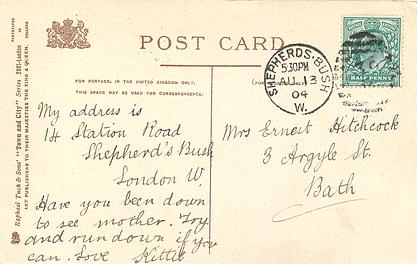 POST CARD
FOR POSTAGE IN THE UNITED KINGDOM ONLY.
THIS SPACE MAY BE USED FOR CORRESPONDENCE.
SHEPHERDS·BUSH
5.30PM
AU 13
04
W.
HALF PENNY
My address is
14 Station Road
Shepherd's Bush
London W.
Have you been down
to see mother. Try
and run down if you
can. Love Kittie
Mrs Ernest Hitchcock
3 Argyle St.
Bath
Raphael Tuck & Sons' "Town and City" Series 2011-London
ART PUBLISHERS TO THEIR MAJESTIES THE KING & QUEEN.